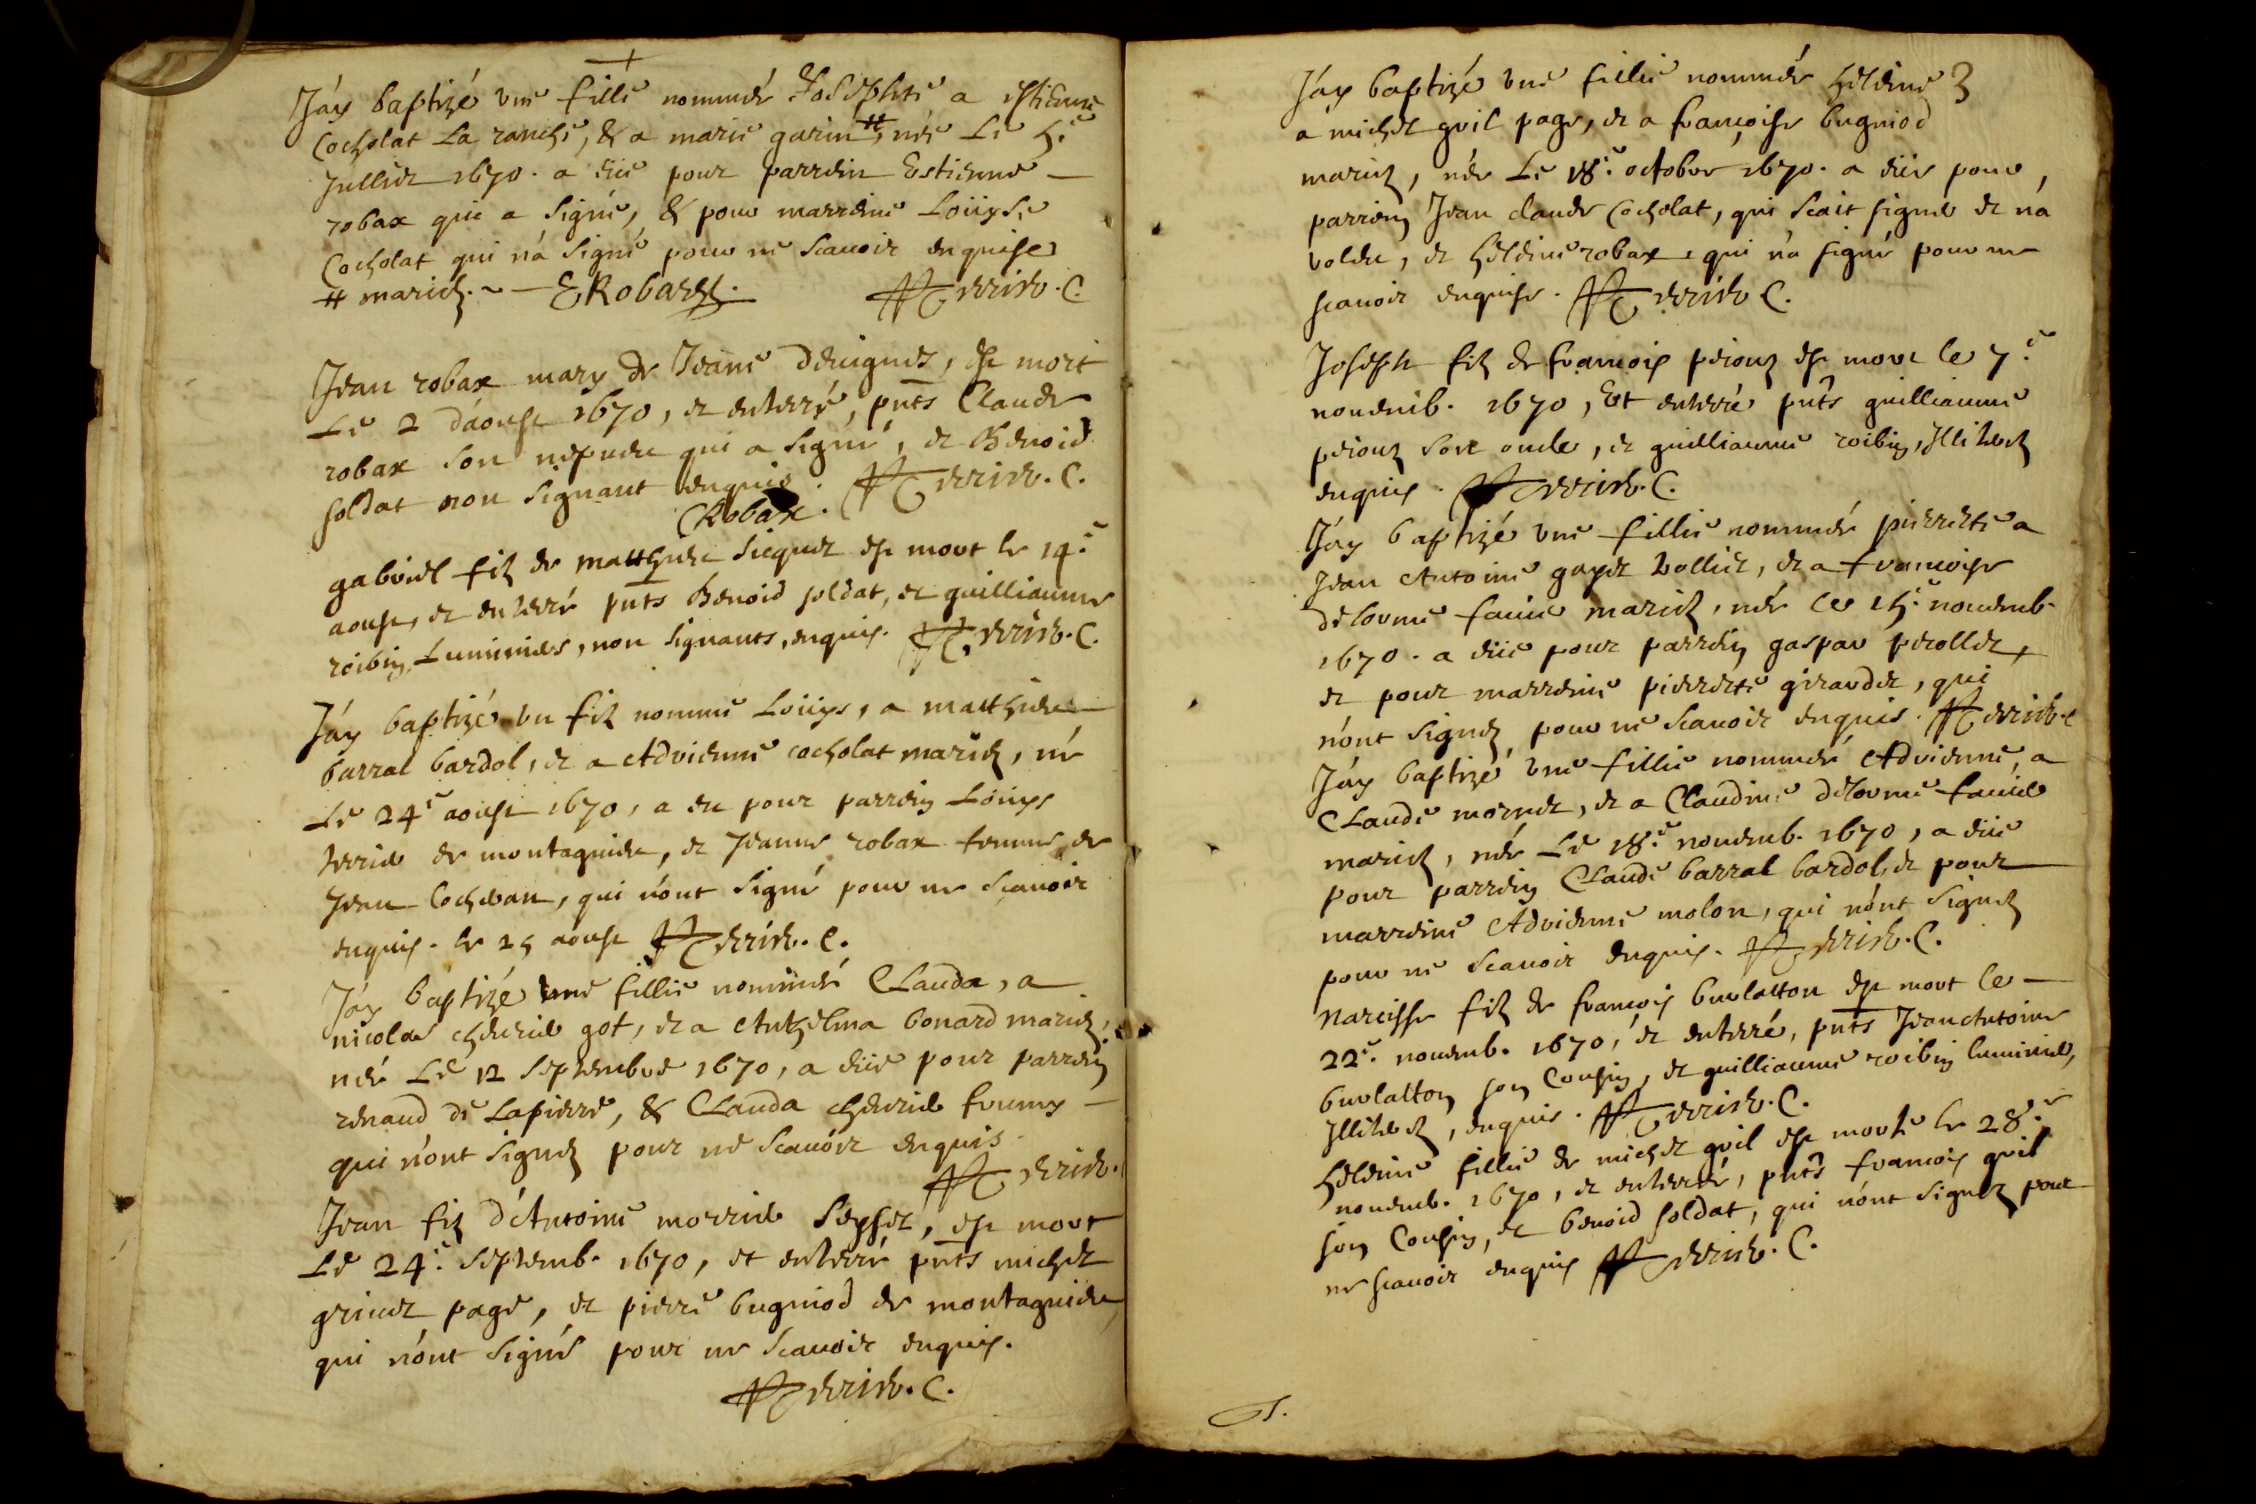 Jáy baptizé une fillie nommée Josephte a estienne
Cocholat La ranche, & a marie garin # née Le 5.e
Jullier 1670. a eüe pour parrein Estienne
robax qui a signé, & pour marreine Loüyse
Cocholat qui ná signé pour ne scavoir enquise
# mariez. ERobax. Perrier. C.
Jean robax mary de Jeane deuignet, est mort
Le 2 dáoust 1670, et enterré, pnts Claude
robax son nepueu qui a signé, et Benoid
soldat non signant enquis. Perrier. C.
CRobax.
gabriel filz de matthieu siequet est mort le 14.e
aoust, et enterré pnts Benoid soldat, et guilliaume
roibin Luminier, non signants, enquis. Perrier. C.
Jáy baptizé un filz nommé Loüys, a matthieu
barral bardol, et a Advienne cocholat mariez, né
Le 24e aoust 1670, a eu pour parrein Loüys
terrier de montagnieu, et Jeanne robax femme de
Jean Cochean, qui nónt signé pour ne scavoir
enquis. le 25 aoust Perrier. C.
Jáy baptizé une fillie nommeé CLauda, a
nicolas cheurier got, et a Anthelma bonard mariez,
née Le 12 septembre 1670, a eüe pour parrein
renaud de Lapierre, & CLauda cheurier
qui nónt signez pour ne scavoir enquis.
Perrier.
Jean filz dÁntoine morrier seyset, est mort
Le 24.e septemb. 1670, et enterré pnts michel
page, et pierre bugniod de montagnieu
qui nónt signés pour ne scavoir enquis.
Perrier. C.
3
Jáy baptizé une fillie nommeé heleine
a michel gvil page, et a francoise bugniod
mariez, née Le 18.e octobre 1670. a eüe pour
parrein Jean claude Cocholat, qui scait signer et ná
volu, et heleine robax, qui ná signé pour ne
scavoir enquise. Perrier C.
Joseph filz de francois peiouz est mort le 7.e
novemb. 1670, Et enterré pnts guilliaume
peiouz son oncle, et guilliaume roibin, Illiterez
enquis. Perrier. C.
Jáy baptizé une fillie nommeé pierrette a
Jean Antoine gayet vollier, et a francoise
delorme mariez, née le 15.e novemb.
1670. a eüe pour parrein gaspar perollet,
et pour marreine pierrette giraudet, qui
nónt signez pour ne scavoir enquis. Perrier. C
Jáy baptizé une fillie nommeé Advienne, a
CLaude mornet, et a Claudine delorme
mariez, née Le 18.e novemb. 1670, a eüe
pour parrein CLaude barral bardol, et pour
marreine Advienne molon, qui nónt signez
pour ne scavoir enquis. Perrier. C.
Narcisse filz de francois burlatton est mort le
22.e novemb. 1670, et enterré, pnts Jean Antoine
burlatton son Cousin, et guilliaume roibin luminier,
Illiterez, enquis. Perrier. C.
heleine fillie de michel gvil est morte le 28.e
novemb. 1670, et enterreé, pnts francois gvil
son Cousin, et benoid soldat, qui nónt signez pour
ne scavoir enquis Perrier. C.